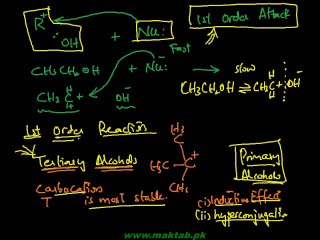 R⁺ ··OH + Nu: 1st Order Attack
Fast
CH₃CH₂OH + Nu:
slow
CH₃CH₂OH ⇌ CH₃C⁺ + OH⁻
H
H
CH₃C⁺ OH⁻
H
H
1st Order Reaction
Tertiary Alcohols
H₃C C⁺
CH₃
CH₃
Carbocation
is most stable.
Primary
Alcohols
(i) Inductive Effect
(ii) hyperconjugation
www.maktab.pk